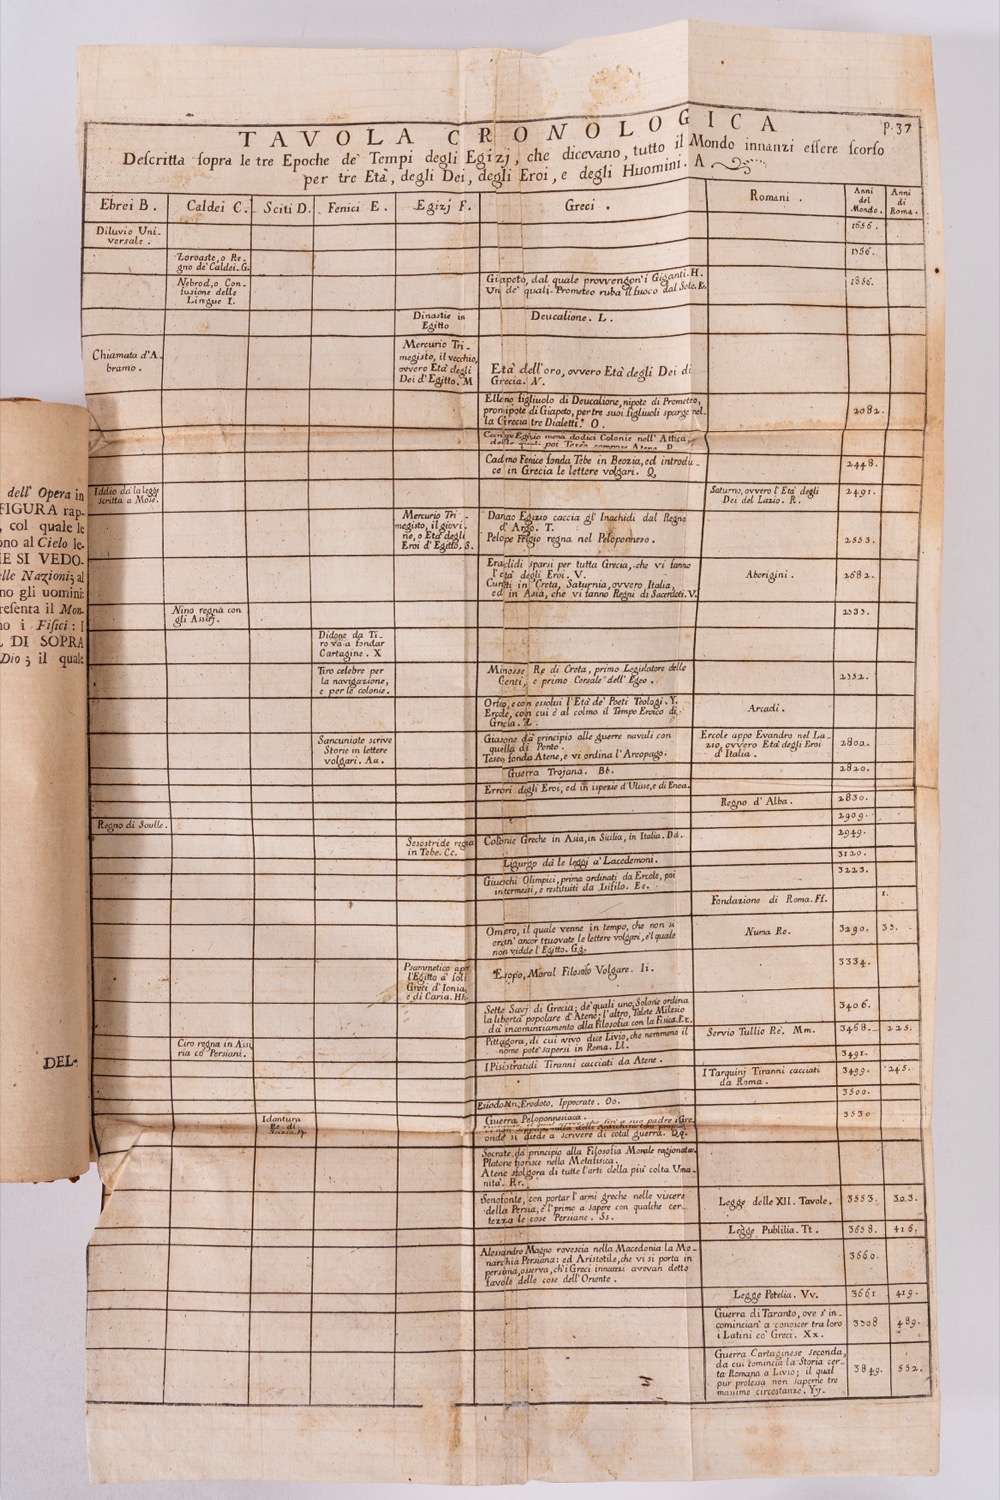 dell' Opera in
FIGURA rap-
, col quale le
ono al Cielo le-
HE SI VEDO-
elle Nazioni; al
no gli uomini:
resenta il Mon-
no i Fisici: I
DI SOPRA
Dio; il quale
DEL-
p. 37
TAVOLA CRONOLOGICA
Descritta sopra le tre Epoche de' Tempi degli Egizj, che dicevano, tutto il Mondo innanzi essere scorso
per tre Età, degli Dei, degli Eroi, e degli Huomini. A
Ebrei B. Caldei C. Sciti D. Fenici E. Egizj F. Greci. Romani. Anni del Mondo. Anni di Roma.
Diluvio Uni-
versale. 1656.
Zoroaste, o Re-
gno de' Caldei. G. 1756.
Nebrod, o Con-
fusione delle
Lingue I.
Giapeto, dal quale provvengon' i Giganti. H.
Un de' quali Prometeo ruba il fuoco dal Sole. K.
1856.
Dinastie in
Egitto
Deucalione. L.
Chiamata d'A-
bramo.
Mercurio Tri-
megisto, il vecchio,
ovvero Età degli
Dei d'Egitto. M
Età dell'oro, ovvero Età degli Dei di
Grecia. N.
Elleno figliuolo di Deucalione, nipote di Prometeo,
pronipote di Giapeto, per tre suoi figliuoli sparge nel-
la Grecia tre Dialetti. O.
2082.
Cecrope Egizio mena dodici Colonie nell' Attica,
delle quali poi Teseo compose Atene. P.
Cadmo Fenice fonda Tebe in Beozia, ed introdu-
ce in Grecia le lettere volgari. Q.
2448.
Iddio dà la legge
scritta a Mosè.
Saturno, ovvero l'Età degli
Dei del Lazio. R.
2491.
Mercurio Tri-
megisto, il giovi-
ne, o Età degli
Eroi d'Egitto. S.
Danao Egizio caccia gl' Inachidi dal Regno
d' Argo. T.
Pelope Frigio regna nel Peloponneso.
2553.
Eraclidi sparsi per tutta Grecia, che vi fanno
l'età degli Eroi. V.
Cureti in Creta, Saturnia, ovvero Italia,
ed in Asia, che vi fanno Regni di Sacerdoti. V.
Aborigini.
2682.
Nino regna con
gli Assirj.
Didone da Ti-
ro va a fondar
Cartagine. X
Tiro celebre per
la navigazione,
e per le colonie.
Minosse Re di Creta, primo Legislatore delle
Genti, e primo Corsale dell' Egeo.
Orfeo, e con essolui l'Età de' Poeti Teologi. Y.
Ercole, con cui è al colmo il Tempo Eroico di
Grecia. Z.
Arcadi.
Sancuniate scrive
Storie in lettere
volgari. Aa.
Giasone dà principio alle guerre navali con
quella di Ponto.
Teseo fonda Atene, e vi ordina l'Areopago.
Ercole appo Evandro nel La-
zio, ovvero Età degli Eroi
d'Italia.
2800.
Guerra Trojana. Bb.
2820.
Errori degli Eroi, ed in ispezie d'Ulisse, e di Enea.
Regno d' Alba.
2830.
Regno di Saulle.
2909.
Sesostride regna
in Tebe. Cc.
Colonie Greche in Asia, in Sicilia, in Italia. Dd.
2949.
Ligurgo dà le leggi a' Lacedemoni.
3120.
Giuochi Olimpici, prima ordinati da Ercole, poi
intermessi, e restituiti da Isifilo. Ee.
3223.
Fondazione di Roma. Ff.
1.
Omero, il quale venne in tempo, che non si
eran' ancor truovate le lettere volgari, e'l quale
non vidde l'Egitto. Gg.
Numa Re.
3290. 37.
Psammetico apre
l'Egitto a' soli
Greci d'Ionia,
e di Caria. Hh.
Esopo, Moral Filosofo Volgare. Ii.
3334.
Sette Savj di Grecia; de' quali uno, Solone ordina
la libertà popolare d'Atene; l'altro, Talete Milesio
dà incominciamento alla Filosofia con la Fisica. Kk.
3406.
Pittagora, di cui vivo dice Livio, che nemmeno il
nome potè sapersi in Roma. Ll.
Servio Tullio Re. Mm.
3468. 225.
Ciro regna in Assi-
ria co' Persiani.
I Pisistratidi Tiranni cacciati da Atene.
3491.
I Tarquinj Tiranni cacciati
da Roma.
3499. 245.
Esiodo Nn, Erodoto, Ippocrate. Oo.
3500.
Idantura
Re di
Guerra Peloponnesiaca.
onde si diede a scrivere di cotal guerra. Qq.
3530
Socrate dà principio alla Filosofia Morale ragionata.
Platone fiorisce nella Metafisica.
Atene sfolgora di tutte l'arti della più colta Uma-
nità. Rr.
Senofonte, con portar l'armi greche nelle viscere
della Persia, è l' primo a sapere con qualche cer-
tezza le cose Persiane. Ss.
Legge delle XII. Tavole.
3553. 303.
Legge Publilia. Tt.
3658. 416.
Alessandro Magno rovescia nella Macedonia la Mo-
narchia Persiana: ed Aristotile, che vi si porta in
persona, osserva, ch'i Greci innanzi avevan detto
favole delle cose dell'Oriente.
3660.
Legge Petelia. Vv.
3661 419.
Guerra di Taranto, ove s' in-
comincian' a conoscer tra loro
i Latini co' Greci. Xx.
3708 489.
Guerra Cartaginese seconda,
da cui comincia la Storia cer-
ta Romana a Livio; il qual
pur professa non saperne tre
massime circostanze. Yy.
3849. 552.